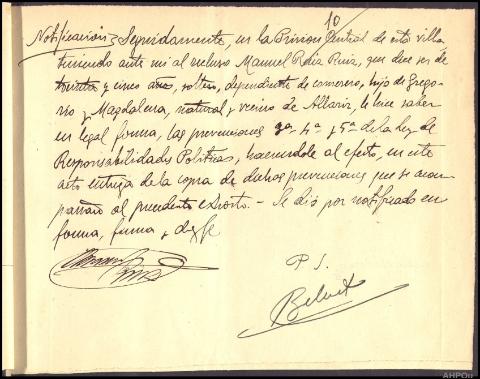 10
Notificación = Seguidamente, en la Prision Central de esta villa
teniendo ante mi al recluso Manuel Ruiz, que dice ser de
treinta y cinco años, soltero, dependiente de comercio, hijo de Grego-
rio y Magdalena, natural y vecino de Allariz, le hice saber
en legal forma, las prevenciones 4ª y 5ª de la ley de
Responsabilidades Politicas, haciendole al efecto, en este
acto entrega de la copia de dichas prevenciones que se acom-
pañan al precedente exhorto. - Se dió por notificado en
forma, firma y doy fe
P. S.
AHPOu